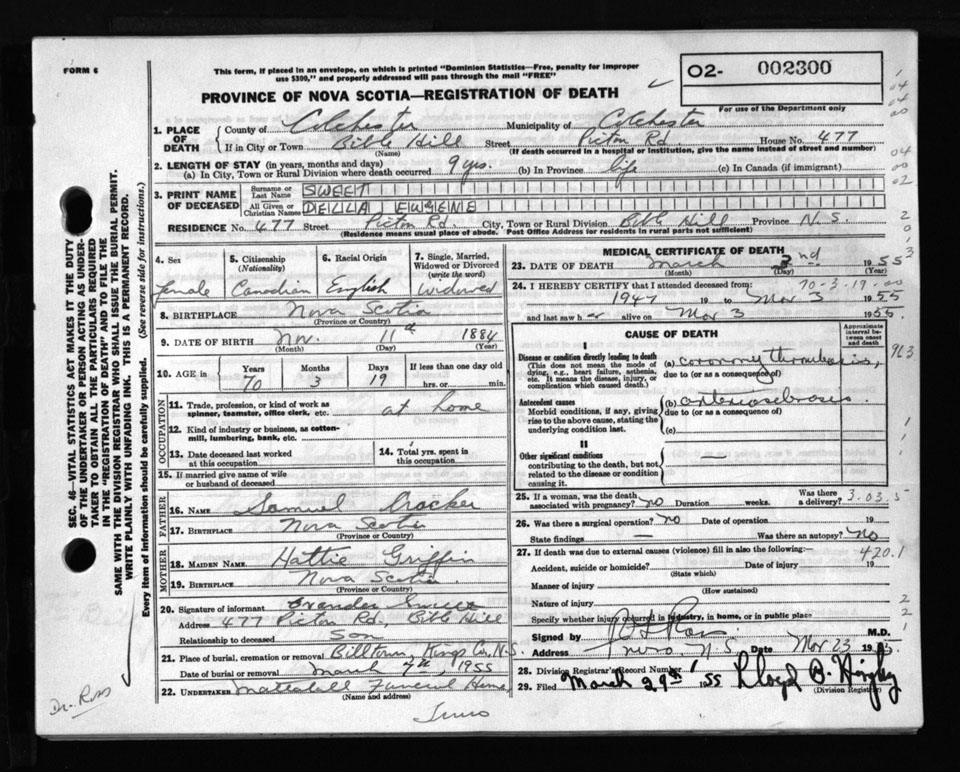 FORM 6
This form, if placed in an envelope, on which is printed "Dominion Statistics—Free, penalty for improper
use $300," and properly addressed will pass through the mail "FREE"
02- 002300
For use of the Department only
PROVINCE OF NOVA SCOTIA—REGISTRATION OF DEATH
1. PLACE OF DEATH
County of Colchester Municipality of Colchester
If in City or Town Bible Hill Street Picton Rd House No. 477
(Name) (If death occurred in a hospital or institution, give the name instead of street and number)
2. LENGTH OF STAY (in years, months and days)
(a) In City, Town or Rural Division where death occurred 9 yrs. (b) In Province life (c) In Canada (if immigrant)
3. PRINT NAME OF DECEASED
Surname or Last Name SWEET
All Given or Christian Names DELLA EUGENE
RESIDENCE No. 477 Street Picton Rd. City, Town or Rural Division Bible Hill Province N.S.
(Residence means usual place of abode. Post Office Address for residents in rural parts not sufficient)
4. Sex
female
5. Citizenship (Nationality)
Canadian
6. Racial Origin
English
7. Single, Married, Widowed or Divorced (write the word)
widowed
8. BIRTHPLACE Nova Scotia
(Province or Country)
9. DATE OF BIRTH Nov. 11th 1884
(Month) (Day) (Year)
10. AGE in Years Months Days If less than one day old
70 3 19 hrs. or min.
OCCUPATION
11. Trade, profession, or kind of work as spinner, teamster, office clerk, etc. at home
12. Kind of industry or business, as cotton-mill, lumbering, bank, etc.
13. Date deceased last worked at this occupation
14. Total yrs. spent in this occupation
15. If married give name of wife or husband of deceased
FATHER
16. NAME Samuel Crocker
17. BIRTHPLACE Nova Scotia
(Province or Country)
MOTHER
18. MAIDEN NAME Hattie Griffin
19. BIRTHPLACE Nova Scotia.
(Province or Country)
20. Signature of informant Evander Sweet
Address 477 Picton Rd., Bible Hill
Relationship to deceased son
21. Place of burial, cremation or removal Billtown, Kings Co., N.S.
Date of burial or removal March 7th, 1955
22. UNDERTAKER Mattatall Funeral Home
(Name and address)
Truro
MEDICAL CERTIFICATE OF DEATH
23. DATE OF DEATH March 2nd 1955
(Month) (Day) (Year)
24. I HEREBY CERTIFY that I attended deceased from: 70-3-19-00
1947 19 to Mar 3 1955
and last saw h er alive on Mar 3 1955.
CAUSE OF DEATH
Approximate interval between onset and death
I
Disease or condition directly leading to death
(This does not mean the mode of dying, e.g., heart failure, asthenia, etc. It means the disease, injury, or complication which caused death.)
(a) coronary thrombosis,
due to (or as a consequence of)
Antecedent causes
Morbid conditions, if any, giving rise to the above cause, stating the underlying condition last.
(b) arteriosclerosis.
due to (or as a consequence of)
(c)
II
Other significant conditions
contributing to the death, but not related to the disease or condition causing it.
963
25. If a woman, was the death associated with pregnancy? no Duration weeks. Was there a delivery?
3.03.5
26. Was there a surgical operation? no Date of operation 19
State findings — Was there an autopsy? No
27. If death was due to external causes (violence) fill in also the following:— 420.1
Accident, suicide or homicide? Date of injury 19
(State which)
Manner of injury
(How sustained)
Nature of injury
Specify whether injury occurred in industry, in home, or in public place
Signed by Ross M.D.
Address Truro, N.S. Date Mar 23 19
28. Division Registrar's Record Number
29. Filed March 29th 1955 Lloyd B.
(Division Registrar)
SEC. 46—VITAL STATISTICS ACT MAKES IT THE DUTY
OF THE UNDERTAKER OR PERSON ACTING AS UNDER-
TAKER TO OBTAIN ALL THE PARTICULARS REQUIRED
IN THE "REGISTRATION OF DEATH" AND TO FILE THE
SAME WITH THE DIVISION REGISTRAR WHO SHALL ISSUE THE BURIAL PERMIT.
WRITE PLAINLY WITH UNFADING INK. THIS IS A PERMANENT RECORD.
Every item of information should be carefully supplied. (See reverse side for instructions.)
Dr. Ross